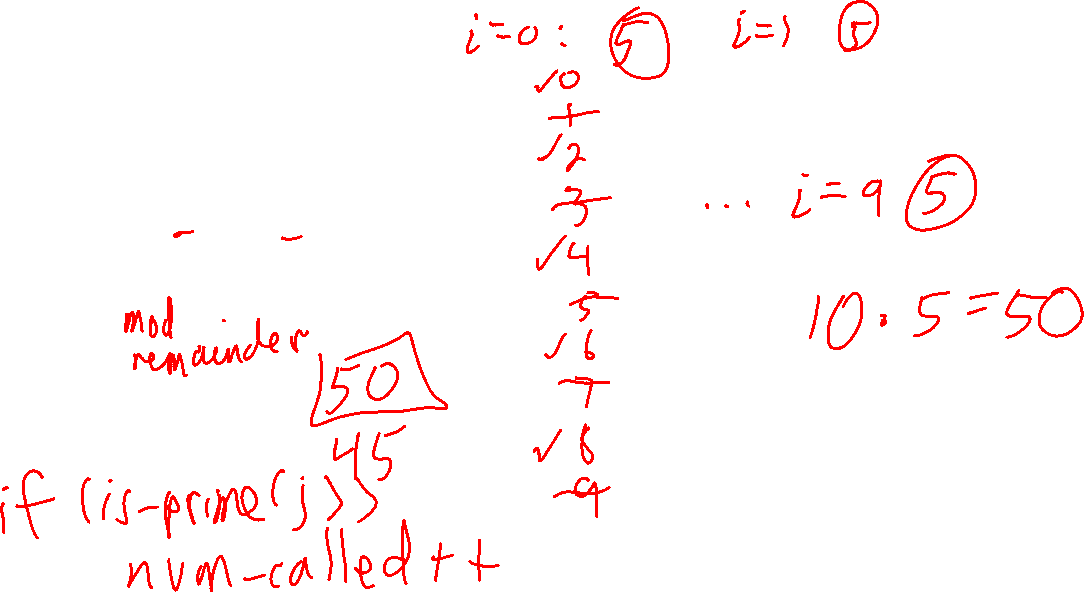 i=0: 5 i=1 5
✓0
1
✓2
3
... i=9 5
✓4
5
10 · 5 = 50
✓6
7
✓8
9
mod
remainder
50
45
if (is-prime(j))
num-called++